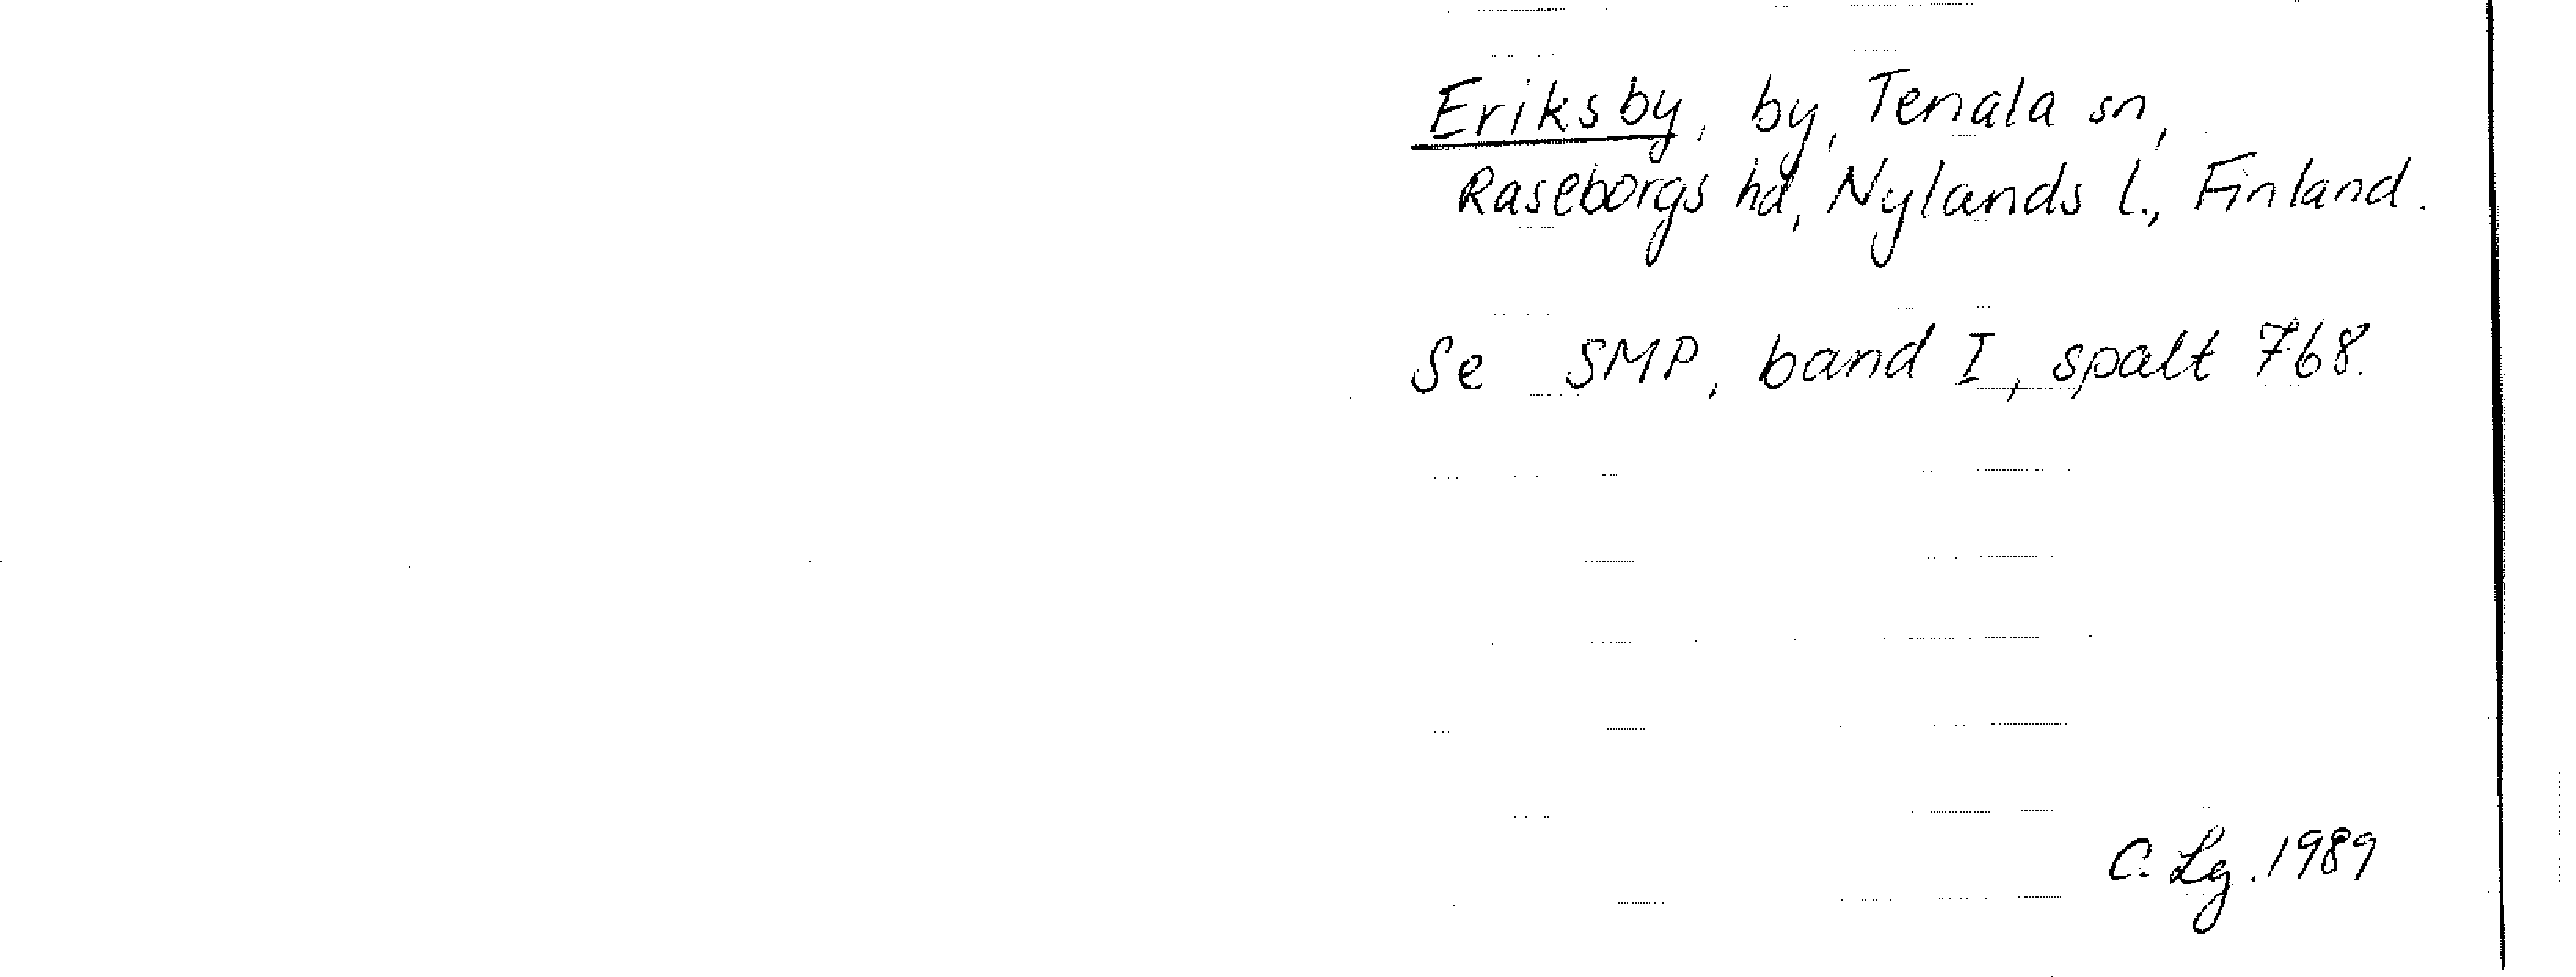 Eriksby, by, Tenala sn,
Raseborgs hd, Nylands l., Finland.
Se SMP, band I, spalt 768.
C. Lg. 1989